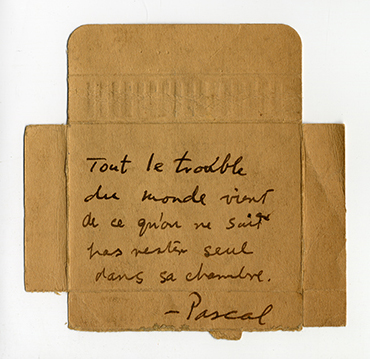 Tout le trouble
du monde vient
de ce qu'on ne sait
pas rester seul
dans sa chambre.
— Pascal